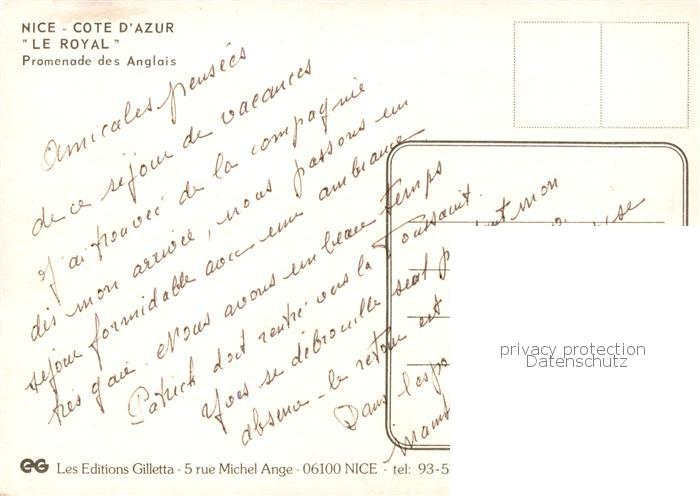 NICE - COTE D'AZUR
"LE ROYAL"
Promenade des Anglais
Amicales pensées
de ce séjour de vacances
J'ai trouvé de la compagnie
dès mon arrivée, nous passons un
séjour formidable avec une ambiance
très gaie. Nous avons un beau temps
Patrick doit rentré vers la Toussaint.
Yves se débrouille seul mon
absence - le retour est
Dans l'espo
privacy protection
Datenschutz
EG Les Editions Gilletta - 5 rue Michel Ange - 06100 NICE - tel: 93-5